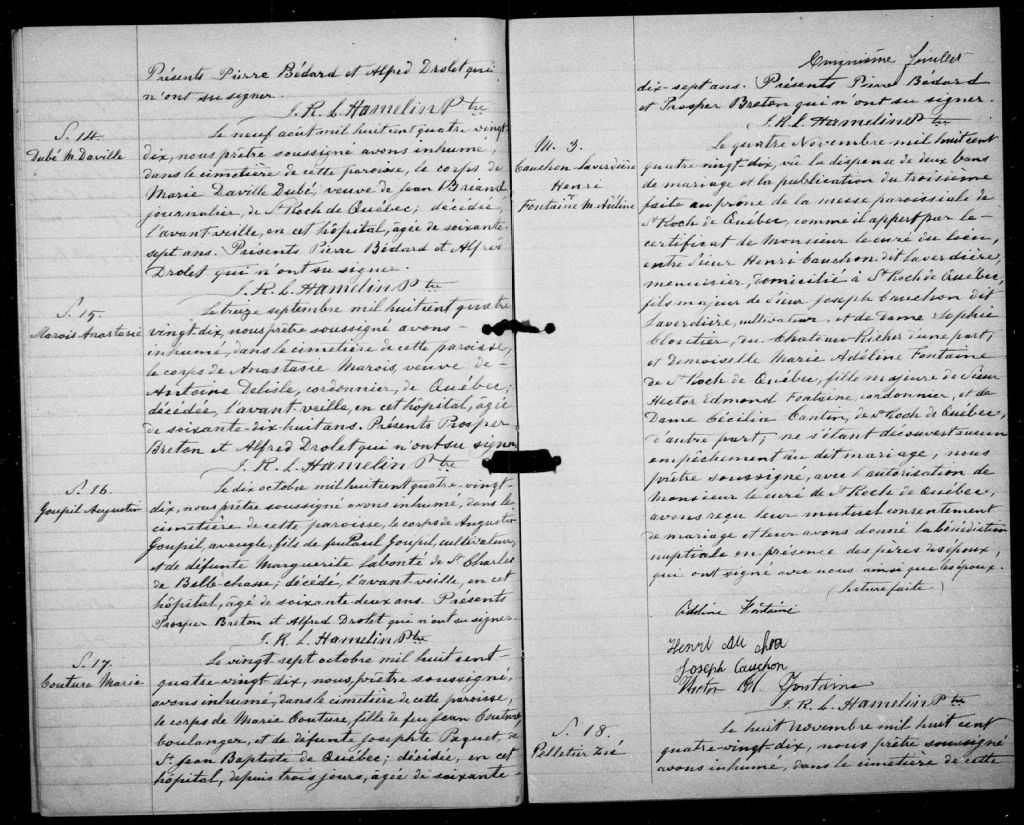 Présents Pierre Bédard et Alfred Drolet qui
n'ont su signer.
J. R. L. Hamelin Ptre
S. 14.
Dubé M. Daville
Le neuf août mil huit cent quatre-vingt
dix, nous prêtre soussigné avons inhumé,
dans le cimetière de cette paroisse, le corps de
Marie Daville Dubé, veuve de Jean Briand
journalier, de St Roch de Québec; décédée,
l'avant veille, en cet hôpital, agée de soixante-
sept ans. Présents Pierre Bédard et Alfred
Drolet qui n'ont su signer.
J. R. L. Hamelin Ptre
S. 15.
Marois Anastasie
Le treize septembre mil huit cent quatre
vingt dix, nous prêtre soussigné avons-
inhumé, dans le cimetière de cette paroisse,
le corps de Anastasie Marois, veuve de-
Antoine Delisle, cordonnier, de Québec;
décédée, l'avant-veille, en cet hôpital, âgée
de soixante-dix huit ans. Présents Prosper
Breton et Alfred Drolet qui n'ont su signer
J. R. L. Hamelin Ptre
S. 16.
Goupil Augustin
Le dix octobre mil huit cent quatre-vingt-
dix, nous prêtre soussigné avons inhumé, dans le
cimetière de cette paroisse, le corps de Augustin
Goupil, aveugle, fils de feu Paul Goupil, cultivateur,
et de défunte Marguerite Labonté de St Charles
de Bellechasse; décédé, l'avant veille, en cet
hôpital, âgé de soixante-deux ans. Présents
Prosper Breton et Alfred Drolet qui n'ont su signer.
J. R. L. Hamelin Ptre
S. 17.
Couture Marie
Le vingt sept octobre mil huit cent-
quatre-vingt dix, nous, prêtre soussigné,
avons inhumé, dans le cimetière de cette paroisse,
le corps de Marie Couture, fille de feu Jean Couture
boulanger, et de défunte Josephte Paquet, de
St Jean Baptiste de Québec; décédée, en cet
hôpital, depuis trois jours, agée de soixante-
Cinquième feuillet
dix-sept ans. Présents Pierre Bédard
et Prosper Breton qui n'ont su signer.
J. R. L. Hamelin Ptre
M. 3.
Cauchon-Laverdière
Henri
et
Fontaine M. Adéline
Le quatre Novembre mil huit cent
quatre vingt dix, vû la dispense de deux bans
de mariage et la publication du troisième
faite au prône de la messe paroissiale de
St Roch de Québec, comme il appert par le-
certificat de Monsieur le curé du lieu,
entre Sieur Henri Cauchon dit Laverdière,
menuisier, domicilié à St Roch de Québec,
fils majeur de Sieur Joseph Cauchon dit
Laverdière, cultivateur, et de Dame Sophie
Cloutier, du Château-Richer d'une part;
et Demoiselle Marie Adéline Fontaine
de St Roch de Québec, fille majeure de Sieur
Hector Edmond Fontaine, cordonnier, et de
Dame Cécilia Cantin, de St Roch de Québec,
d'autre part; ne s'étant découvert aucun
empêchement au dit mariage; nous
prêtre soussigné, avec l'autorisation de
Monsieur le curé de St Roch de Québec,
avons reçu leur mutuel consentement
de mariage et leur avons donné la bénédiction
nuptiale en présence des pères des époux,
qui ont signé avec nous ainsi que les époux.
(Lecture faite)
Adéline Fontaine
Henri
Joseph Cauchon
Hector Ed. Fontaine
J. R. L. Hamelin Ptre
S. 18.
Pelletier Zoé
Le huit Novembre mil huit cent
quatre-vingt dix, nous prêtre soussigné
avons inhumé, dans le cimetière de cette